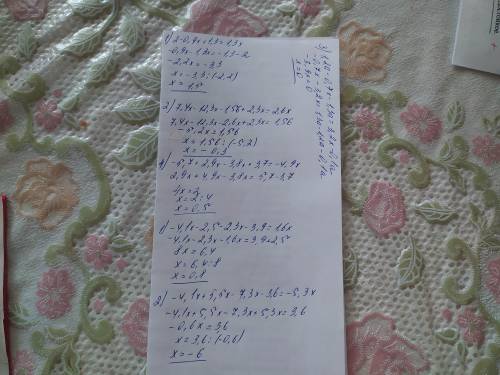 1) 2-0,9x+1,3=1,3x
-0,9x-1,3x=-1,3-2
-2,2x=-3,3
x=-3,3:(-2,2)
x=1,5
2) 7,4x-12,3x-1,56+2,3x=2,6x
7,4x-12,3x-2,6x+2,3x=1,56
-5,2x=1,56
x=1,56:(-5,2)
x=-0,3
4) -5,7+2,9x-3,8x+3,7=-4,9x
2,9x+4,9x-3,8x=5,7-3,7
4x=2
x=2:4
x=0,5
1) -4,1x-2,5-2,3x-3,9=1,6x
-4,1x-2,3x-1,6x=3,9+2,5
8x=6,4
x=6,4:8
x=0,8
2) -4,1x+5,5x-7,3x-3,6=-5,3x
-4,1x+5,5x-7,3x+5,3x=3,6
-0,6x=3,6
x=3,6:(-0,6)
x=-6
x=0